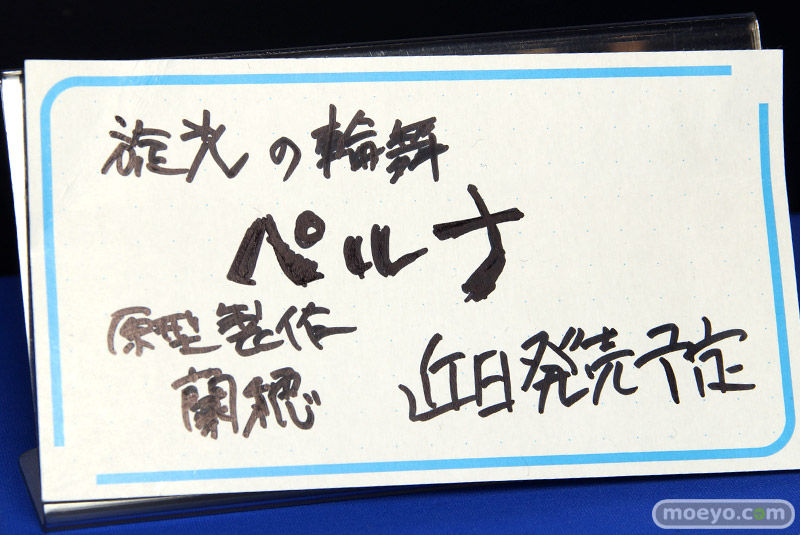 旋光の輪舞
ペルナ
原型製作
蘭穂
近日発売予定
moeyo.com